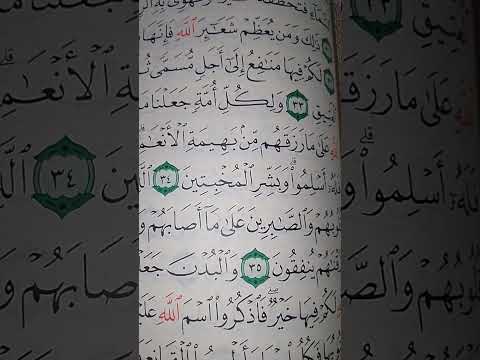 ذَٰلِكَ وَمَن يُعَظِّمْ شَعَٰٓئِرَ ٱللَّهِ فَإِنَّهَا
لَكُمْ فِيهَا مَنَٰفِعُ إِلَىٰٓ أَجَلٍ مُّسَمًّى
٣٣ وَلِكُلِّ أُمَّةٍ جَعَلْنَا
عَلَىٰ مَا رَزَقَهُم مِّنۢ بَهِيمَةِ ٱلْأَنْعَٰمِ
أَسْلِمُوا۟ ۗ وَبَشِّرِ ٱلْمُخْبِتِينَ ٣٤
لُوبُهُمْ وَٱلصَّٰبِرِينَ عَلَىٰ مَآ أَصَابَهُمْ
هُمْ يُنفِقُونَ ٣٥ وَٱلْبُدْنَ جَعَ
لَكُمْ فِيهَا خَيْرٌ ۖ فَٱذْكُرُوا۟ ٱسْمَ ٱللَّهِ